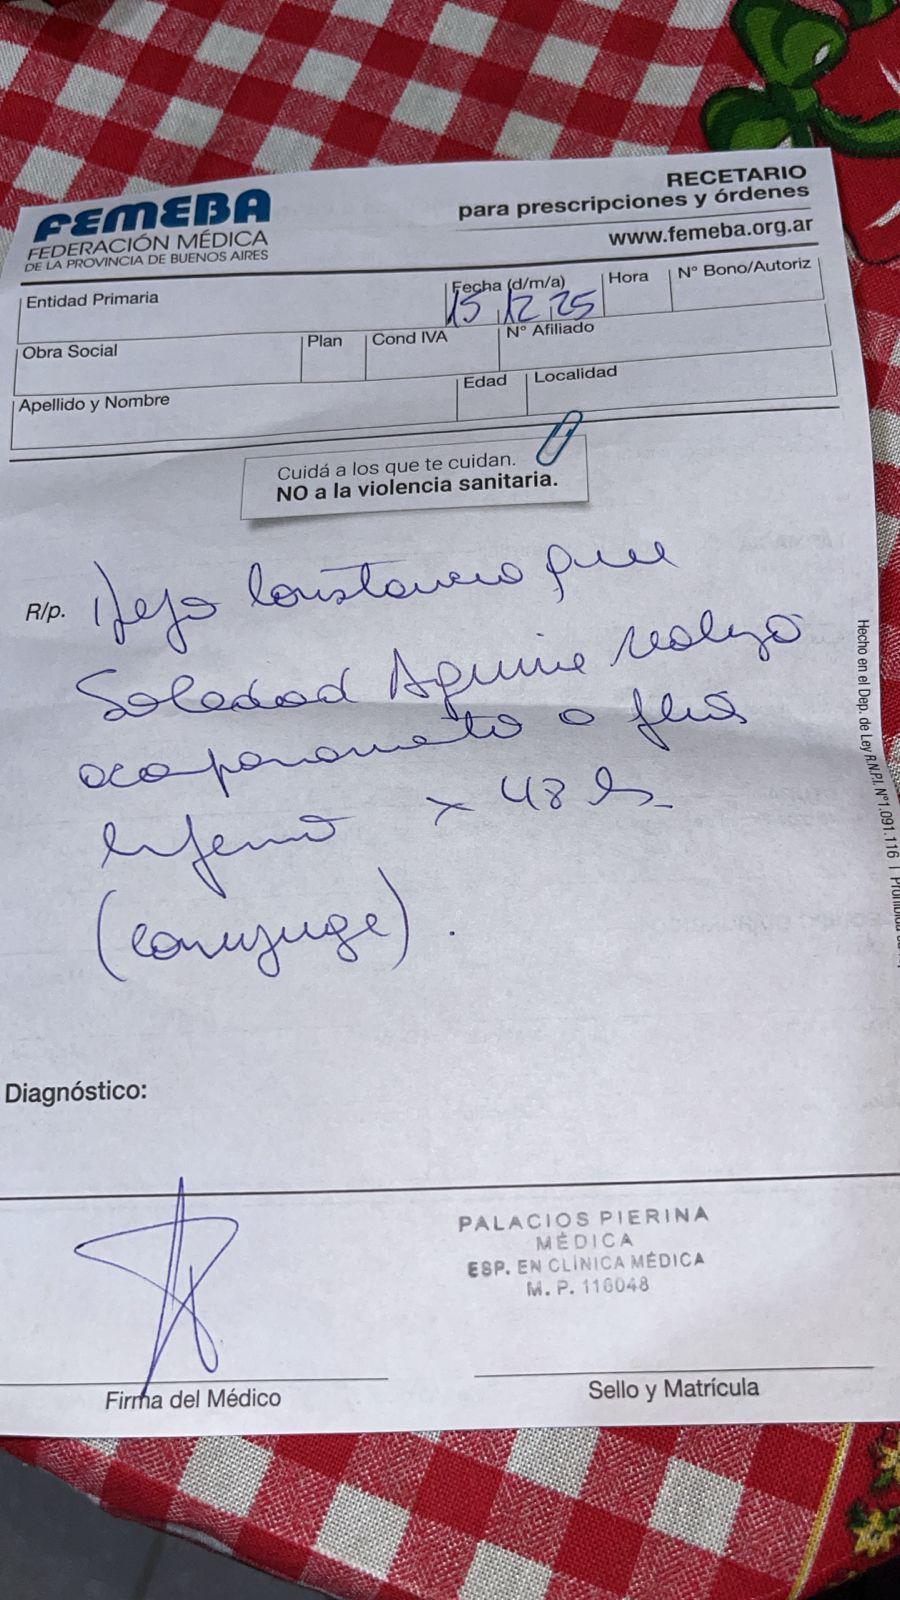 FEMEBA
FEDERACIÓN MÉDICA
DE LA PROVINCIA DE BUENOS AIRES
RECETARIO
para prescripciones y órdenes
www.femeba.org.ar
Entidad Primaria
Fecha (d/m/a)
15 12 25
Hora
N° Bono/Autoriz
Obra Social
Plan
Cond IVA
N° Afiliado
Apellido y Nombre
Edad
Localidad
Cuidá a los que te cuidan.
NO a la violencia sanitaria.
R/p. Dejo constancia que
Soledad Aguirre realizo
acompañamiento a
enfermo x 48 hs
(conyuge).
Hecho en el Dep. de Ley R.N.P.I. N°1.091.116
Diagnóstico:
PALACIOS PIERINA
MÉDICA
ESP. EN CLÍNICA MÉDICA
M. P. 116048
Firma del Médico
Sello y Matrícula